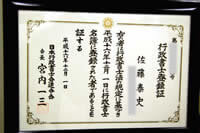 行政書士登録証
佐藤泰史
右の者は行政書士法の規定に基き
平成十六年十月一日に行政書士
名簿に登録された者であることを
証する
平成十六年十月一日
日本行政書士会連合会
会長 宮内一三